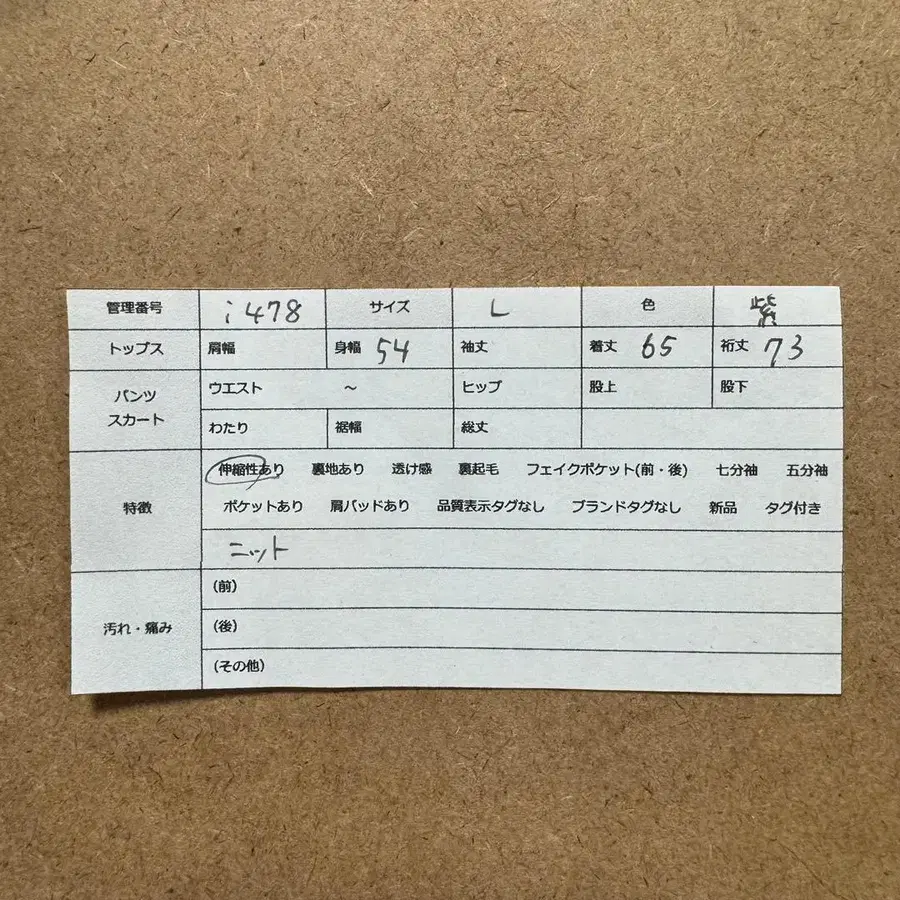 管理番号 i478 サイズ L 色 紫
トップス 肩幅 身幅 54 袖丈 着丈 65 裄丈 73
パンツ スカート ウエスト ～ ヒップ 股上 股下
わたり 裾幅 総丈
特徴 伸縮性あり 裏地あり 透け感 裏起毛 フェイクポケット(前・後) 七分袖 五分袖
ポケットあり 肩パッドあり 品質表示タグなし ブランドタグなし 新品 タグ付き
ニット
汚れ・痛み (前)
(後)
(その他)